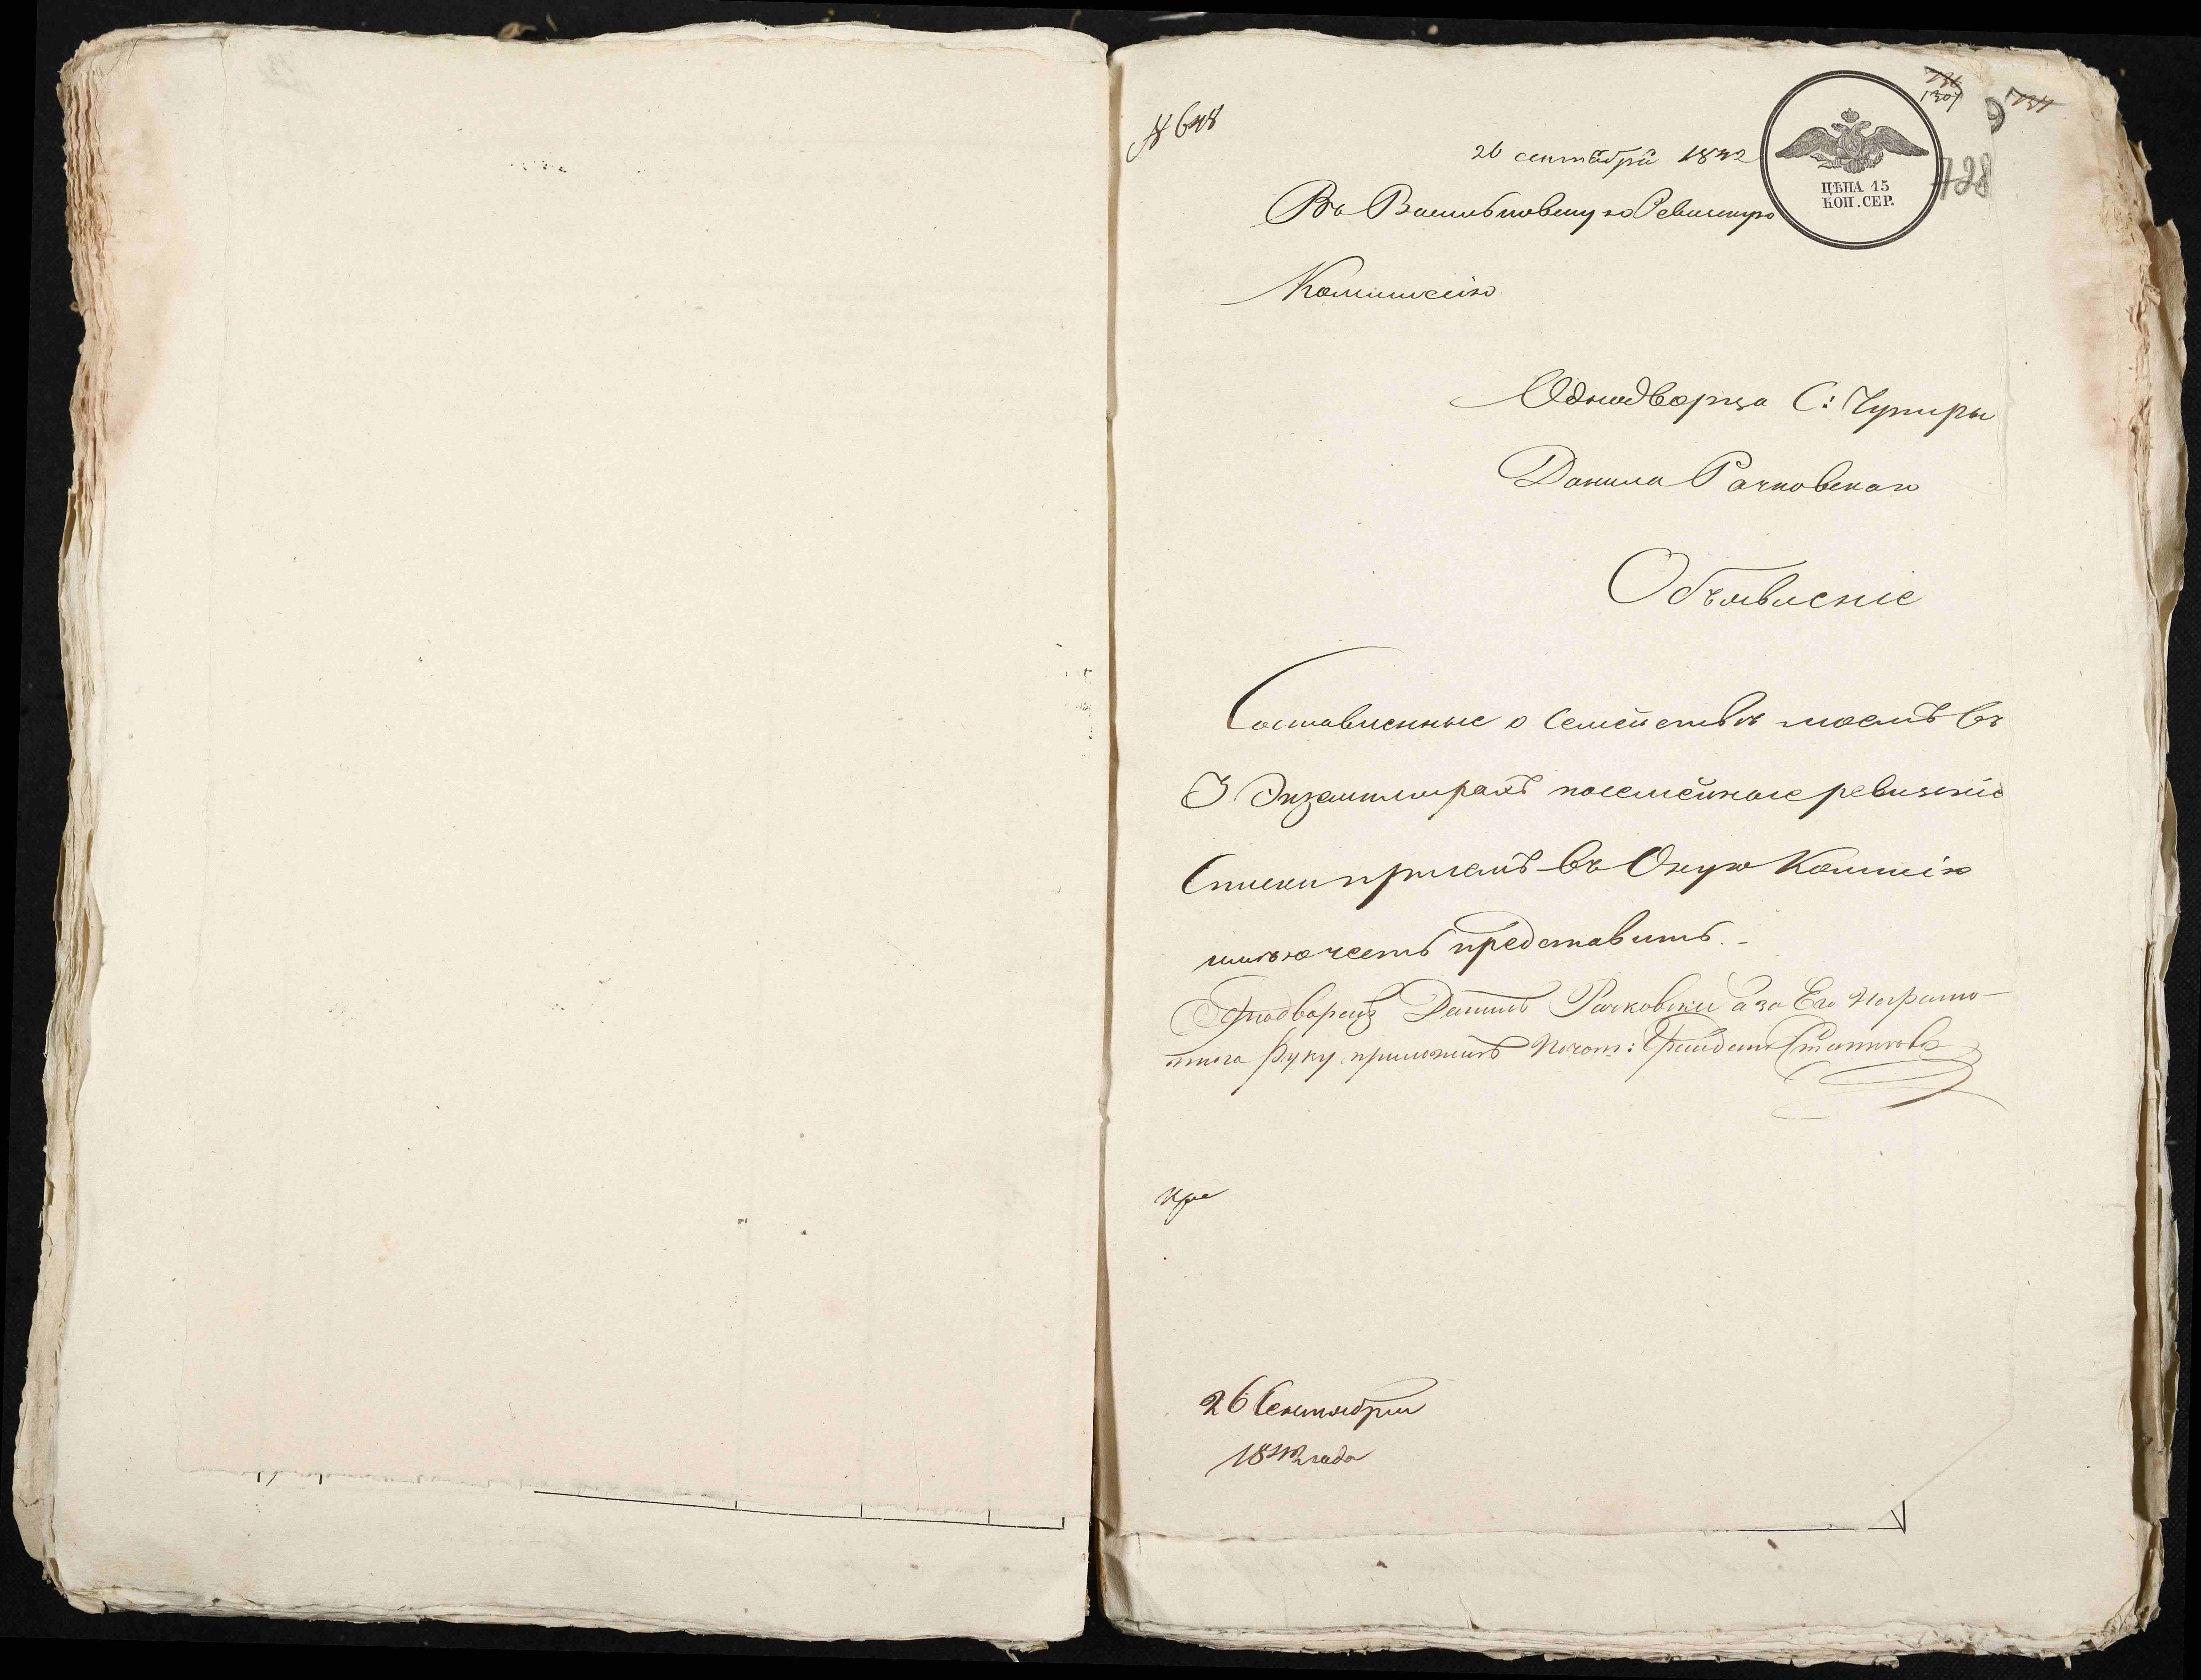 № 648
1307
728
26 сентября 1842
ЦѢНА 15
КОП. СЕР.
Въ Васильковскую Ревизскую
Коммисію
Однодворца С: Чупиры
Данила Рачковскаго
Объявленіе
Составленные о Семействѣ моемъ въ
3 Экземплярахъ посемейные ревизскіе
Списки при семъ въ Оную Комисію
имѣю честь представить.-
Однодворецъ Данилъ Рачковскій а за Его Неграмо-
тнаго Руку приложилъ
26 Сентября
1842 года